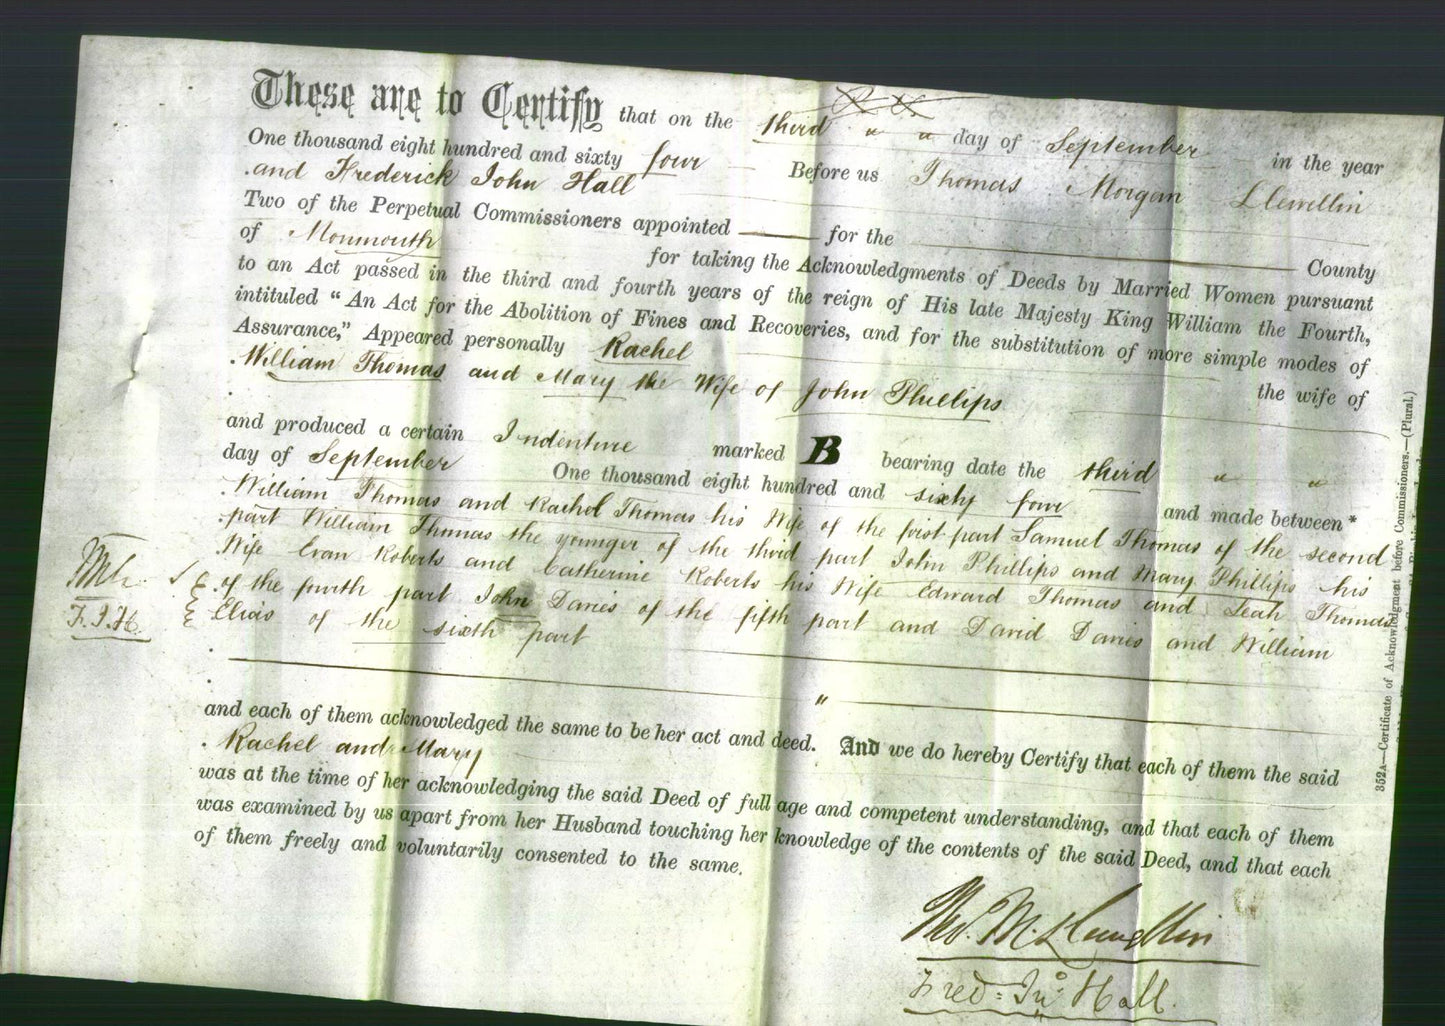 These are to Certify that on the third " " day of September in the year
One thousand eight hundred and sixty four Before us Thomas Morgan Llewellin
and Frederick John Hall
Two of the Perpetual Commissioners appointed for the County
of Monmouth for taking the Acknowledgments of Deeds by Married Women pursuant
to an Act passed in the third and fourth years of the reign of His late Majesty King William the Fourth,
intituled “An Act for the Abolition of Fines and Recoveries, and for the substitution of more simple modes of
Assurance,” Appeared personally Rachel the wife of
William Thomas and Mary the Wife of John Phillips
and produced a certain Indenture marked B bearing date the third " "
day of September One thousand eight hundred and sixty four and made between*
William Thomas and Rachel Thomas his Wife of the first part Samuel Thomas of the second
part William Thomas the younger of the third part John Phillips and Mary Phillips his
Wife Evan Roberts and Catherine Roberts his Wife Edward Thomas and Leah Thomas
of the fourth part John Davies of the fifth part and David Davies and William
Elias of the sixth part
F. J. H.
"
and each of them acknowledged the same to be her act and deed. And we do hereby Certify that each of them the said
Rachel and Mary
was at the time of her acknowledging the said Deed of full age and competent understanding, and that each of them
was examined by us apart from her Husband touching her knowledge of the contents of the said Deed, and that each
of them freely and voluntarily consented to the same.
Tho. M. Llewellin
Fred: Jno Hall.
352A—Certificate of Acknowledgment before Commissioners.—(Plural.)